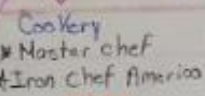 Cookery
* Master chef
* Iron Chef America